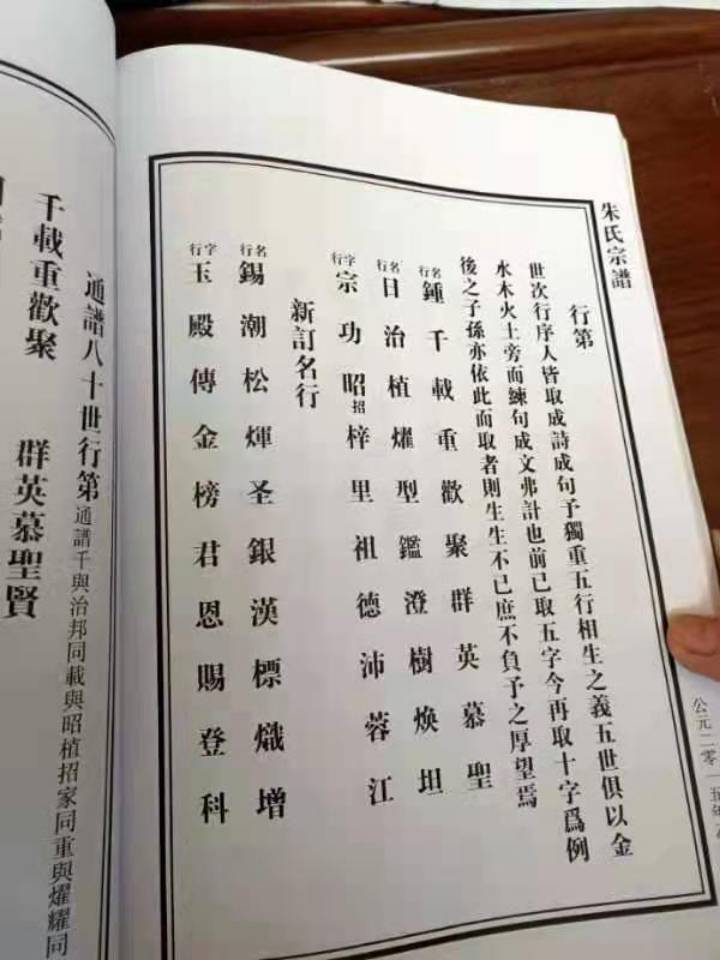 朱氏宗譜
公元二零一五年
行第
世次行序人皆取成詩成句予獨重五行相生之義五世俱以金
水木火土旁而練句成文弗計也前已取五字今再取十字爲例
後之子孫亦依此而取者則生生不已庶不負予之厚望焉
名行鍾千載重歡聚群英慕聖
名行日治植燿型鑑澄樹煥坦
字行宗功昭招梓里祖德沛蓉江
新訂名行
名行錫潮松煇圣銀漢標熾增
字行玉殿傳金榜君恩賜登科
通譜八十世行第通譜千與治邦同載與昭植招家同重與燿耀同
千載重歡聚 群英慕聖賢